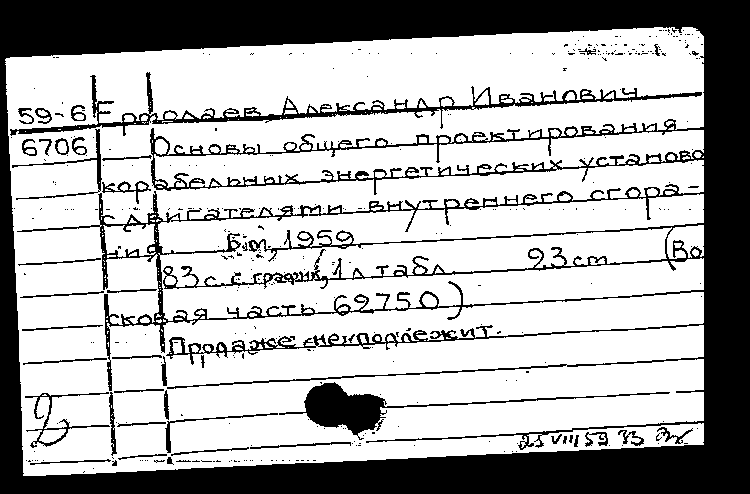 59-6 Ермолаев, Александр Иванович.
6706 Основы общего проектирования
корабельных энергетических установо
с двигателями внутреннего сгора-
ния. Б.м., 1959.
83с. с график, 1 л табл. 23 см. (Во
сковая часть 62750)
Продаже не подлежит.
2
25 VIII 59